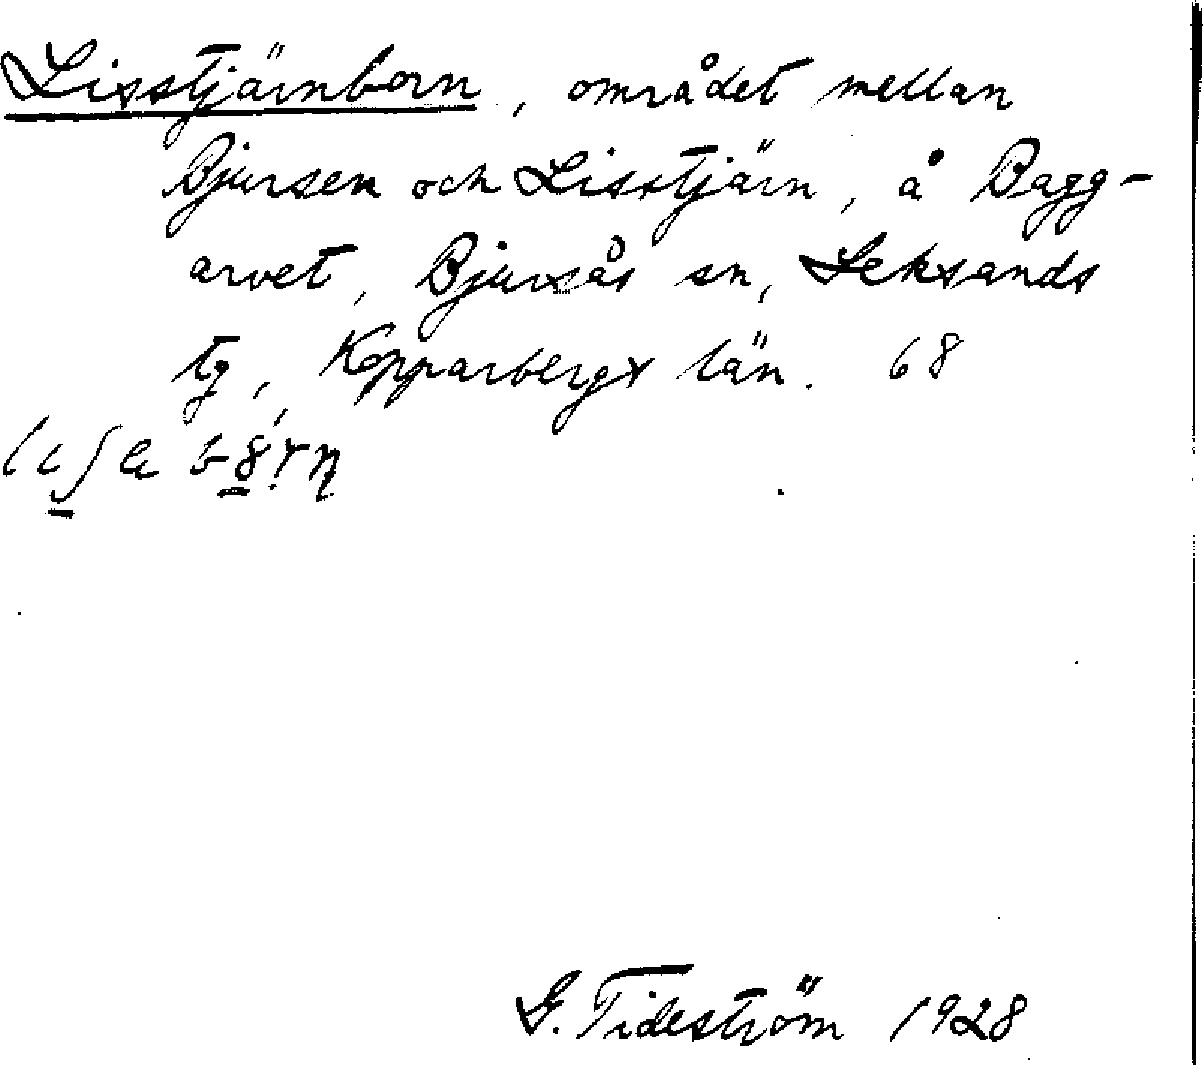 Lisstjärnborn, området mellan
Bjursen och Lisstjärn, å Bagg-
arvet, Bjursås sn, Leksands
tg, Kopparbergs län. 68
G. Tideström 1928